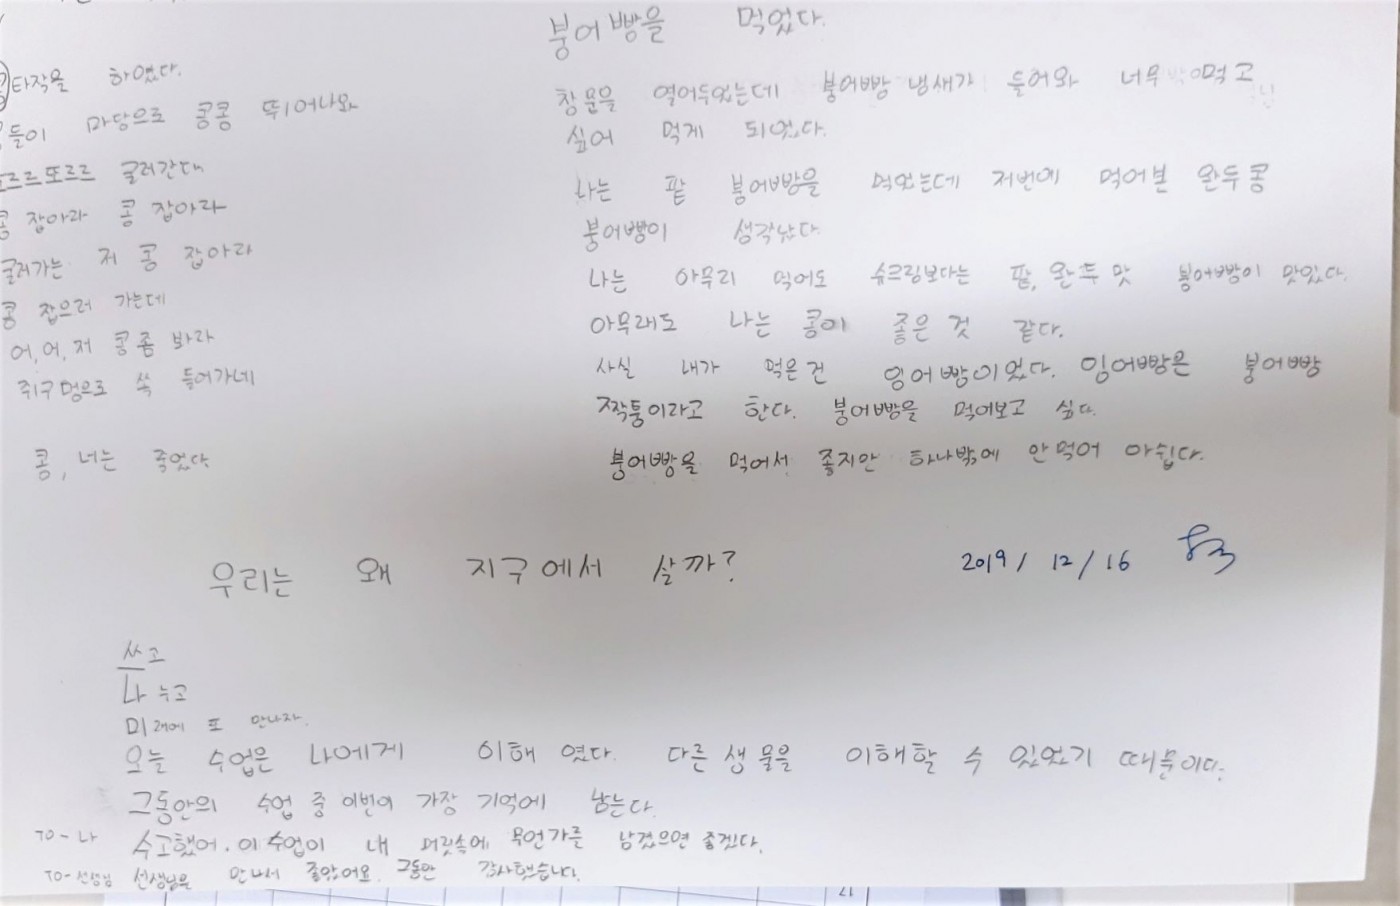 타작을 하였다.
들이 마당으로 콩콩 뛰어나와
또르르 굴러간대
콩 잡아라 콩 잡아라
굴러가는 저 콩 잡아라
콩 잡으러 가는데
어, 어, 저 콩 좀 봐라
쥐구멍으로 쏙 들어가네
콩, 너는 죽었다
붕어빵을 먹었다.
창문을 열어두었는데 붕어빵 냄새가 들어와 너무 먹고
싶어 먹게 되었다.
나는 팥 붕어빵을 먹었는데 저번에 먹어본 완두콩
붕어빵이 생각났다
나는 아무리 먹어도 슈크림보다는 팥, 완두 맛 붕어빵이 맛있다.
아무래도 나는 콩이 좋은 것 같다.
사실 내가 먹은건 잉어빵이었다. 잉어빵은 붕어빵
짝퉁이라고 한다. 붕어빵을 먹어보고 싶다.
붕어빵을 먹어서 좋지만 하나밖에 안 먹어 아쉽다.
우리는 왜 지구에서 살까? 2019/12/16
쓰고
나누고
미래에 또 만나자.
오늘 수업은 나에게 이해 였다. 다른 생물을 이해할 수 있었기 때문이다.
그동안의 수업 중 이번이 가장 기억에 남는다.
TO-나 수고했어. 이 수업이 내 머릿속에 무언가를 남겼으면 좋겠다.
TO-선생님 선생님을 만나서 좋았어요. 그동안 감사했습니다.
17